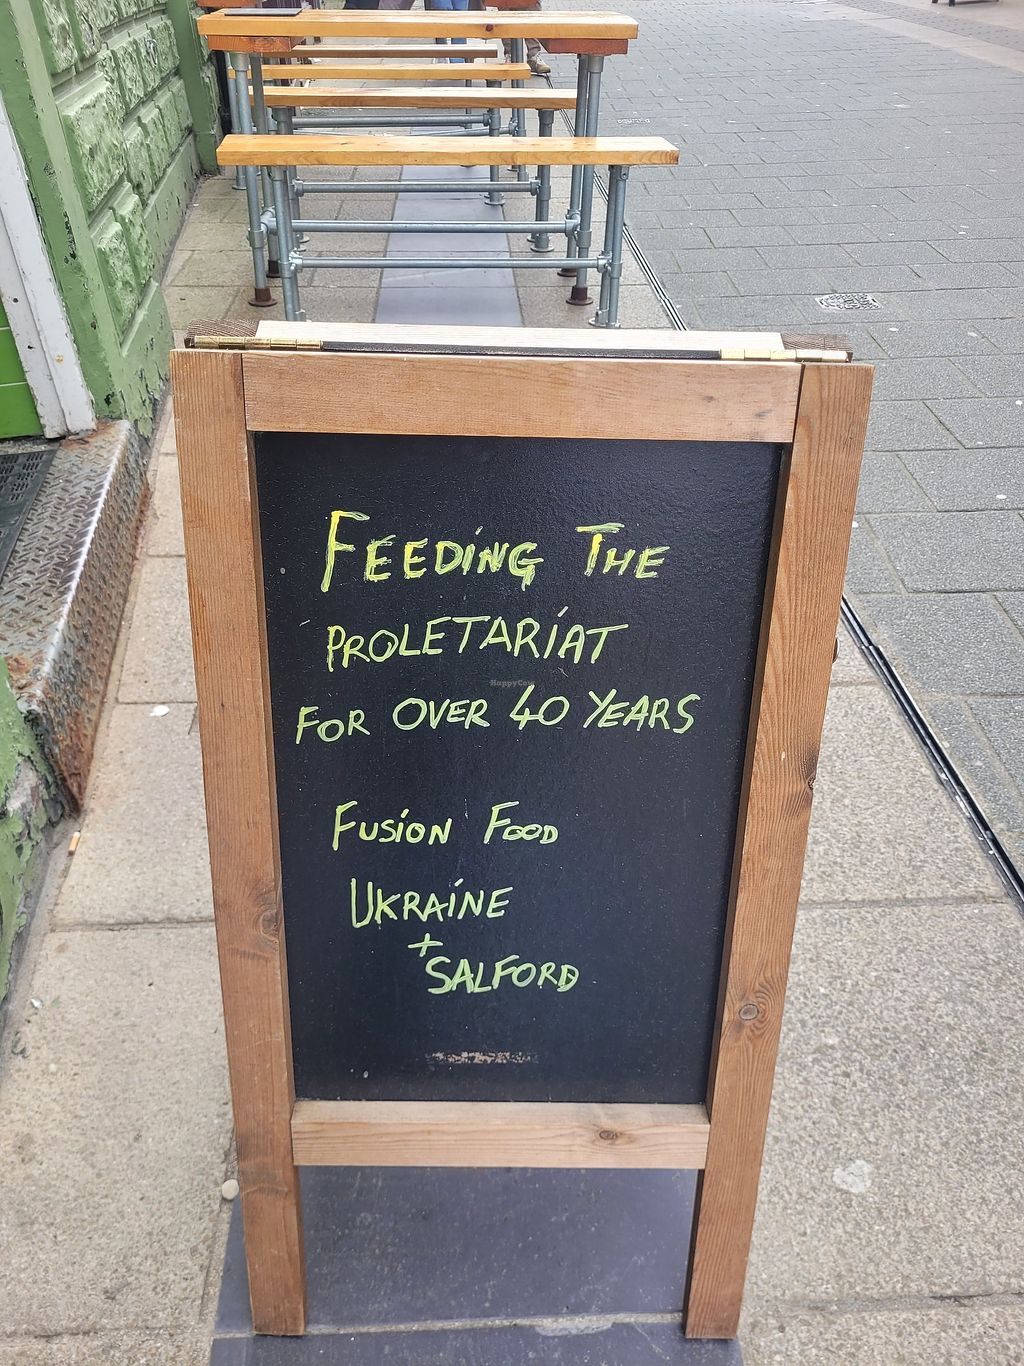 FEEDING THE
PROLETARIAT
HappyCow
FOR OVER 40 YEARS
FUSION FOOD
UKRAINE
+
SALFORD